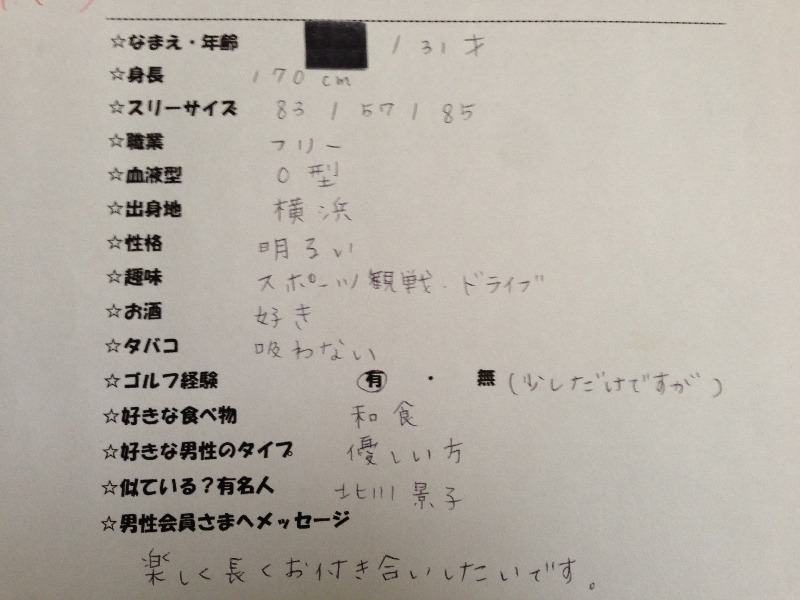 ☆なまえ・年齢 / 31才
☆身長 170cm
☆スリーサイズ 83/57/85
☆職業 フリー
☆血液型 O型
☆出身地 横浜
☆性格 明るい
☆趣味 スポーツ観戦・ドライブ
☆お酒 好き
☆タバコ 吸わない
☆ゴルフ経験 有・無(少しだけですが)
☆好きな食べ物 和食
☆好きな男性のタイプ 優しい方
☆似ている?有名人 北川景子
☆男性会員さまへメッセージ
楽しく長くお付き合いしたいです。